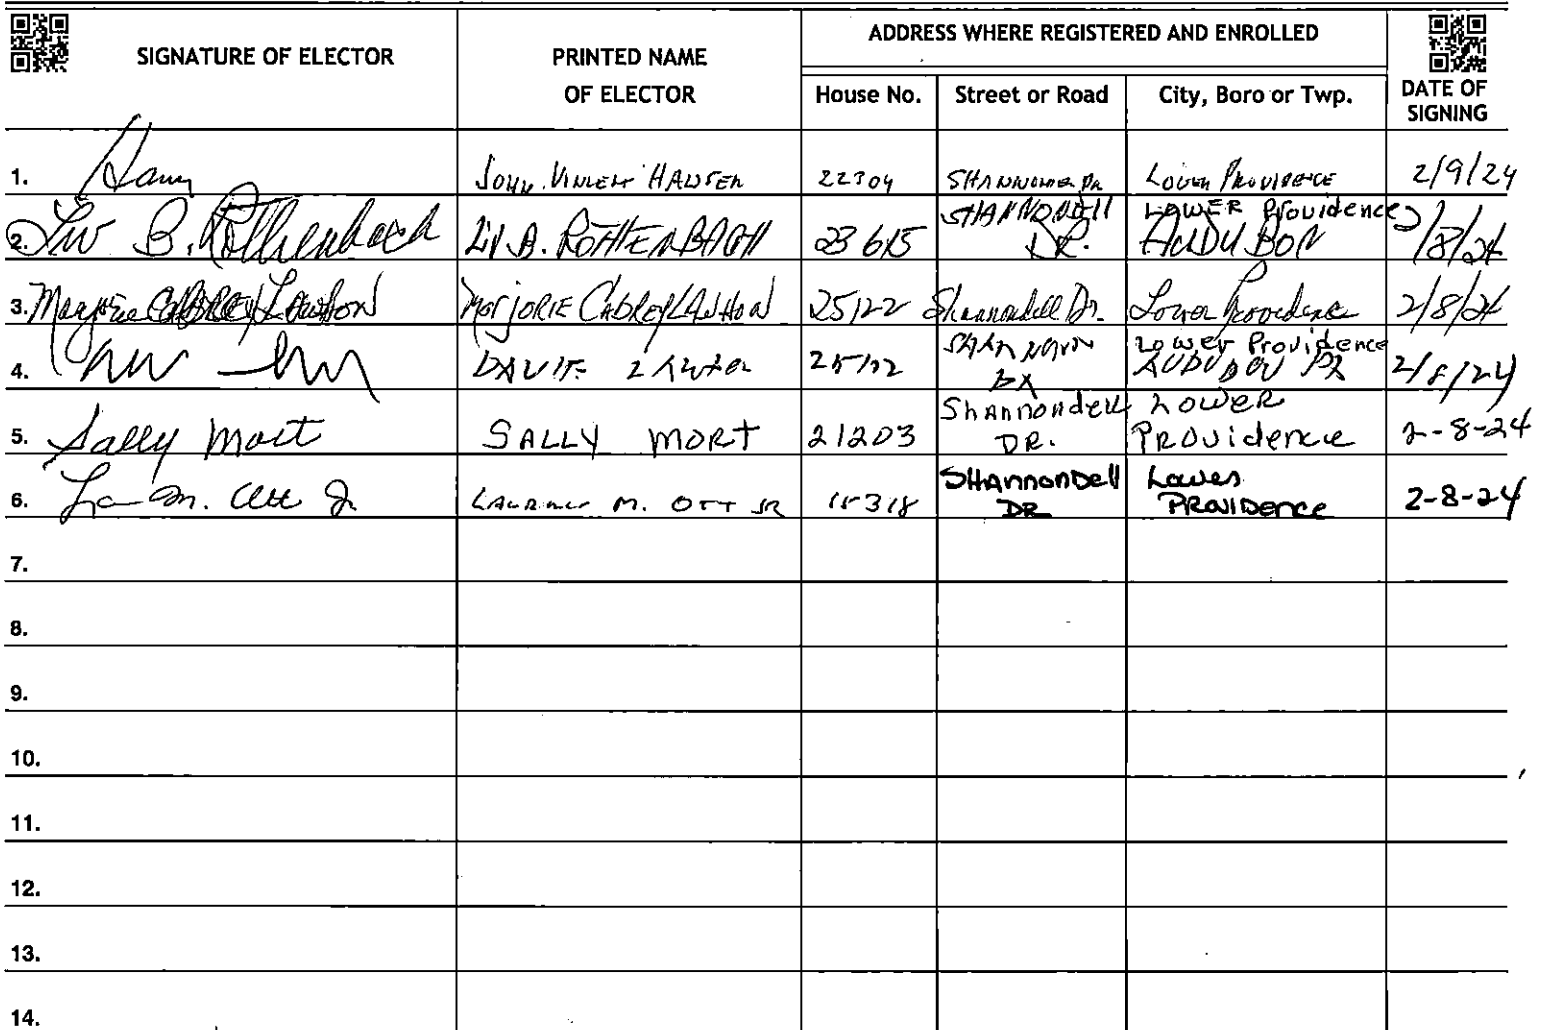 SIGNATURE OF ELECTOR
PRINTED NAME
OF ELECTOR
ADDRESS WHERE REGISTERED AND ENROLLED
House No.
Street or Road
City, Boro or Twp.
DATE OF
SIGNING
1. JOHN 22304 Lower PROVIDENCE 2/9/24
2. B. Rothenbach ROTHENBACH 23615 SHANNONDELL DR. LOWER Providence AUDUBON 2/8/24
3. Marjorie Marjorie 25122 Shannondell Dr. Lower Providence 2/8/24
4. 25122 Lower Providence AUDUBON PA 2/8/24
5. Sally Mort SALLY MORT 21203 Shannondell DR. Lower PROVidence 2-8-24
6. M. Ott M. OTT JR SHAnnonDell DR Lower PROVIDence 2-8-24
7.
8.
9.
10.
11.
12.
13.
14.